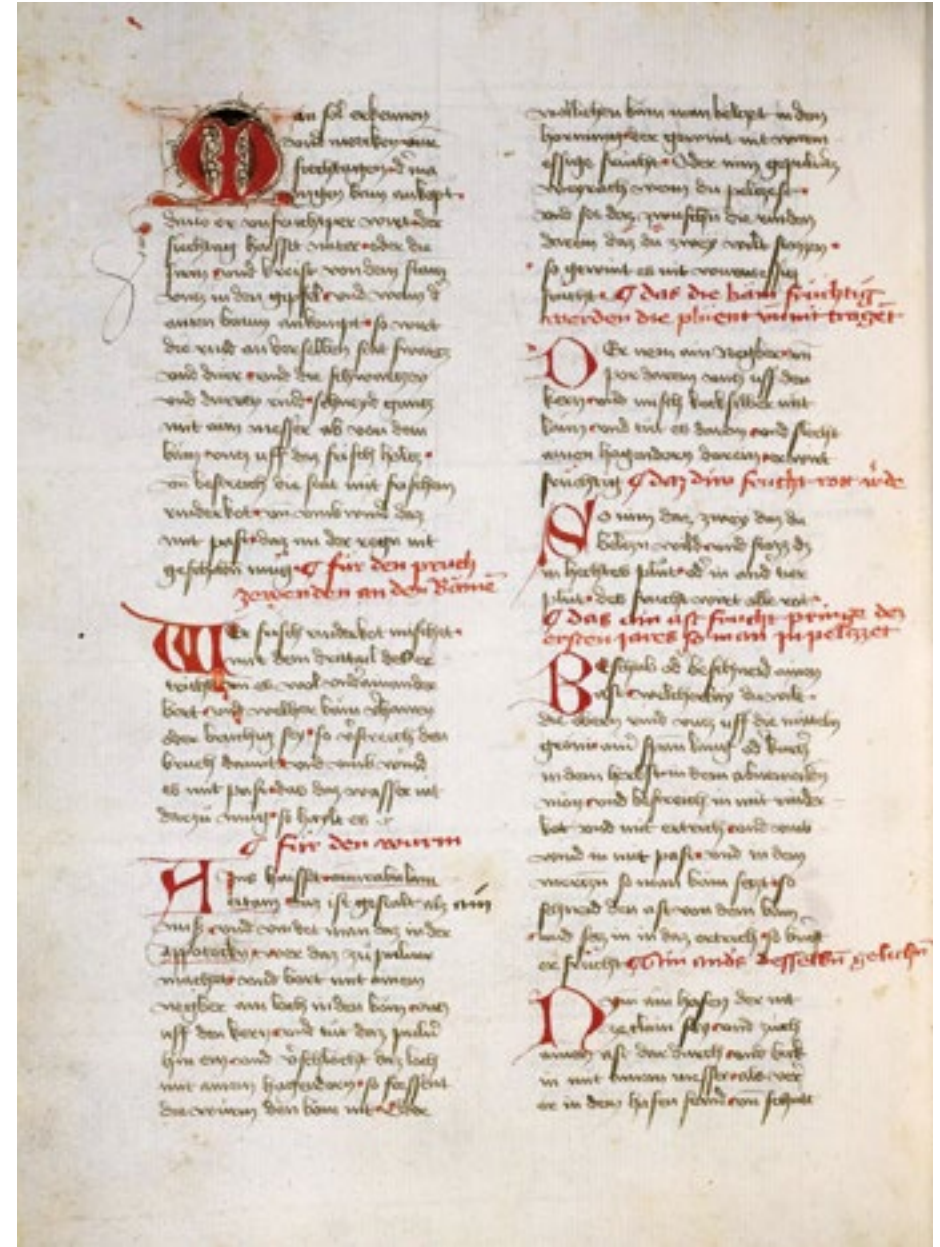 Man sol erkennen
und merken die
siechtagen d ma
nigen bam ankept
damit er unfruchtper wirt der
siechtag haisset
und kreist von dem stam
uncz in den gipfel und wenn d
ainen baum ankumpt so wirt
die rind an derselben seit swarcz
und dürr und die schwarczen
und dürren rind schneyd gancz
mit aim messer ab von dem
bam uncz uff daz frisch holcz
un bestreich die stat mit frischem
rinderkot un umbwind daz
mit past daz im der regn nit
geschaden müg ¶ für den pruch
zewenden an den Bämen
Wer frisch rinderkot mischet
mit dem drittail des er
trichs un es wol undainander
bert und welher bam
oder brüchig sey so bestreich den
bruch damit und umb wind
es mit past das daz wasser nit
darzu müg so haylt es
¶ für den wurm
Ains haisset
daz ist gestalt als ain
nuß und vindet man daz in der
appotecken wer daz zü pulver
machet und bort mit ainem
negber ain loch in den bam uncz
uff den kern und tut daz pulver
hin ein und verschlecht daz loch
mit ainem hagendorn so fressent
die würm den bam nit Oder
wölichen bam man belczt in dem
hornung der gewint nit
essige frücht Oder nim gepulvert
weyrach wenn du pelczest
und se daz zwüschn die rinden
darein daz du zwey wilt stossen
so gewint es nit
frucht ¶ das die bäm früchtig
werden die plüent un nit tragent
Der nem ain Negber un
por darein uncz uff den
kern und misch kecksilber mit
und tut es darein und slecht
ainen hagendorn darein er wirt
früchtig ¶ daz din frucht rott wde
So nim daz zwey daz du
belczen wild und stoss daz
in hechtes plüt od in and tier
plüt des frucht wirt alle rot
¶ das ein ast frucht pringe des
ersten jares so man in pelczet
Beschab od beschneid ainen
ast
die obern und uncz uff die mitteln
lang od kurcz
in dem herbst in dem abnemenden
mon und bestreich in mit rinder
kot und mit ertrich und umb
wind in mit past und in dem
merczen so man bäm seczt so
schneid den ast von dem bam
und secz in in daz ertrich so birt
er frucht ¶ Ain anders desselben gelichn
Nym ain hafen der nit
ze clain sey und züch
ainen ast dar durch und
in mit ainem messer als ver
er in dem hafen stand un schüt